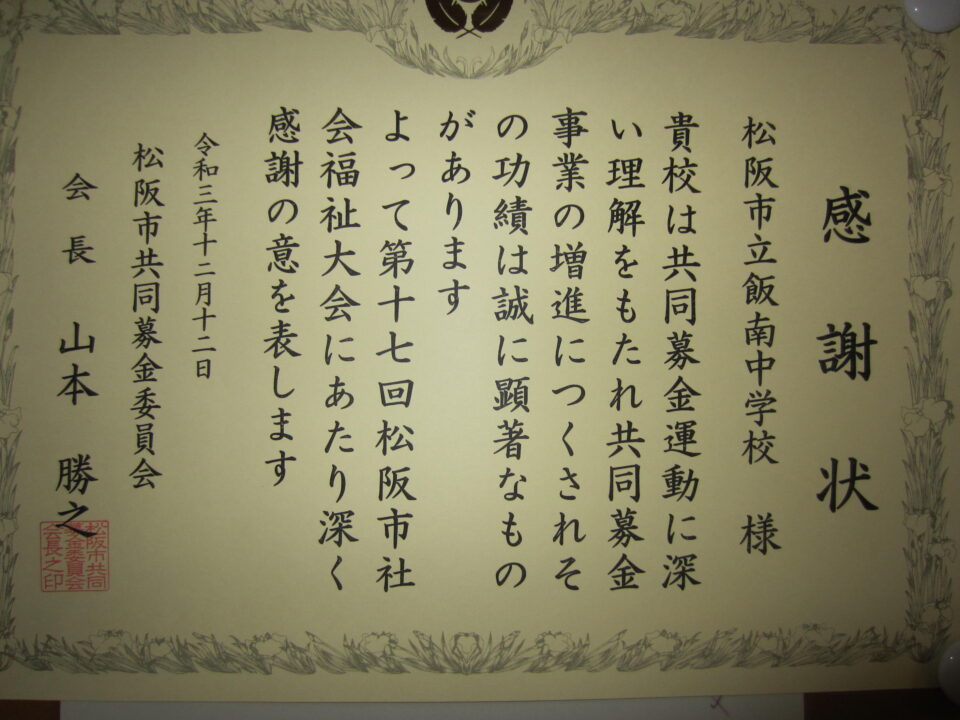 感謝状
松阪市立飯南中学校 様
貴校は共同募金運動に深
い理解をもたれ共同募金
事業の増進につくされそ
の功績は誠に顕著なもの
があります
よって第十七回松阪市社
会福祉大会にあたり深く
感謝の意を表します
令和三年十二月十二日
松阪市共同募金委員会
会長 山本 勝之
松阪市共同
募金委員会
会長之印